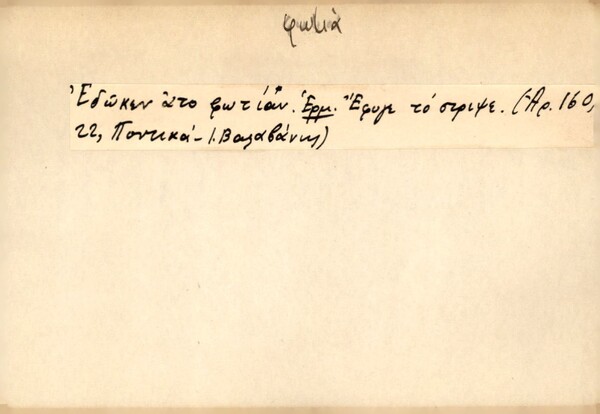 φωτιά
Ἐδῶκεν ἄτο φωτίαν. Ἑρμ. Ἔφυγε τό στριψε. (Ἀρ. 160,
22, Ποντικά - Ι. Βαλαβάνης)